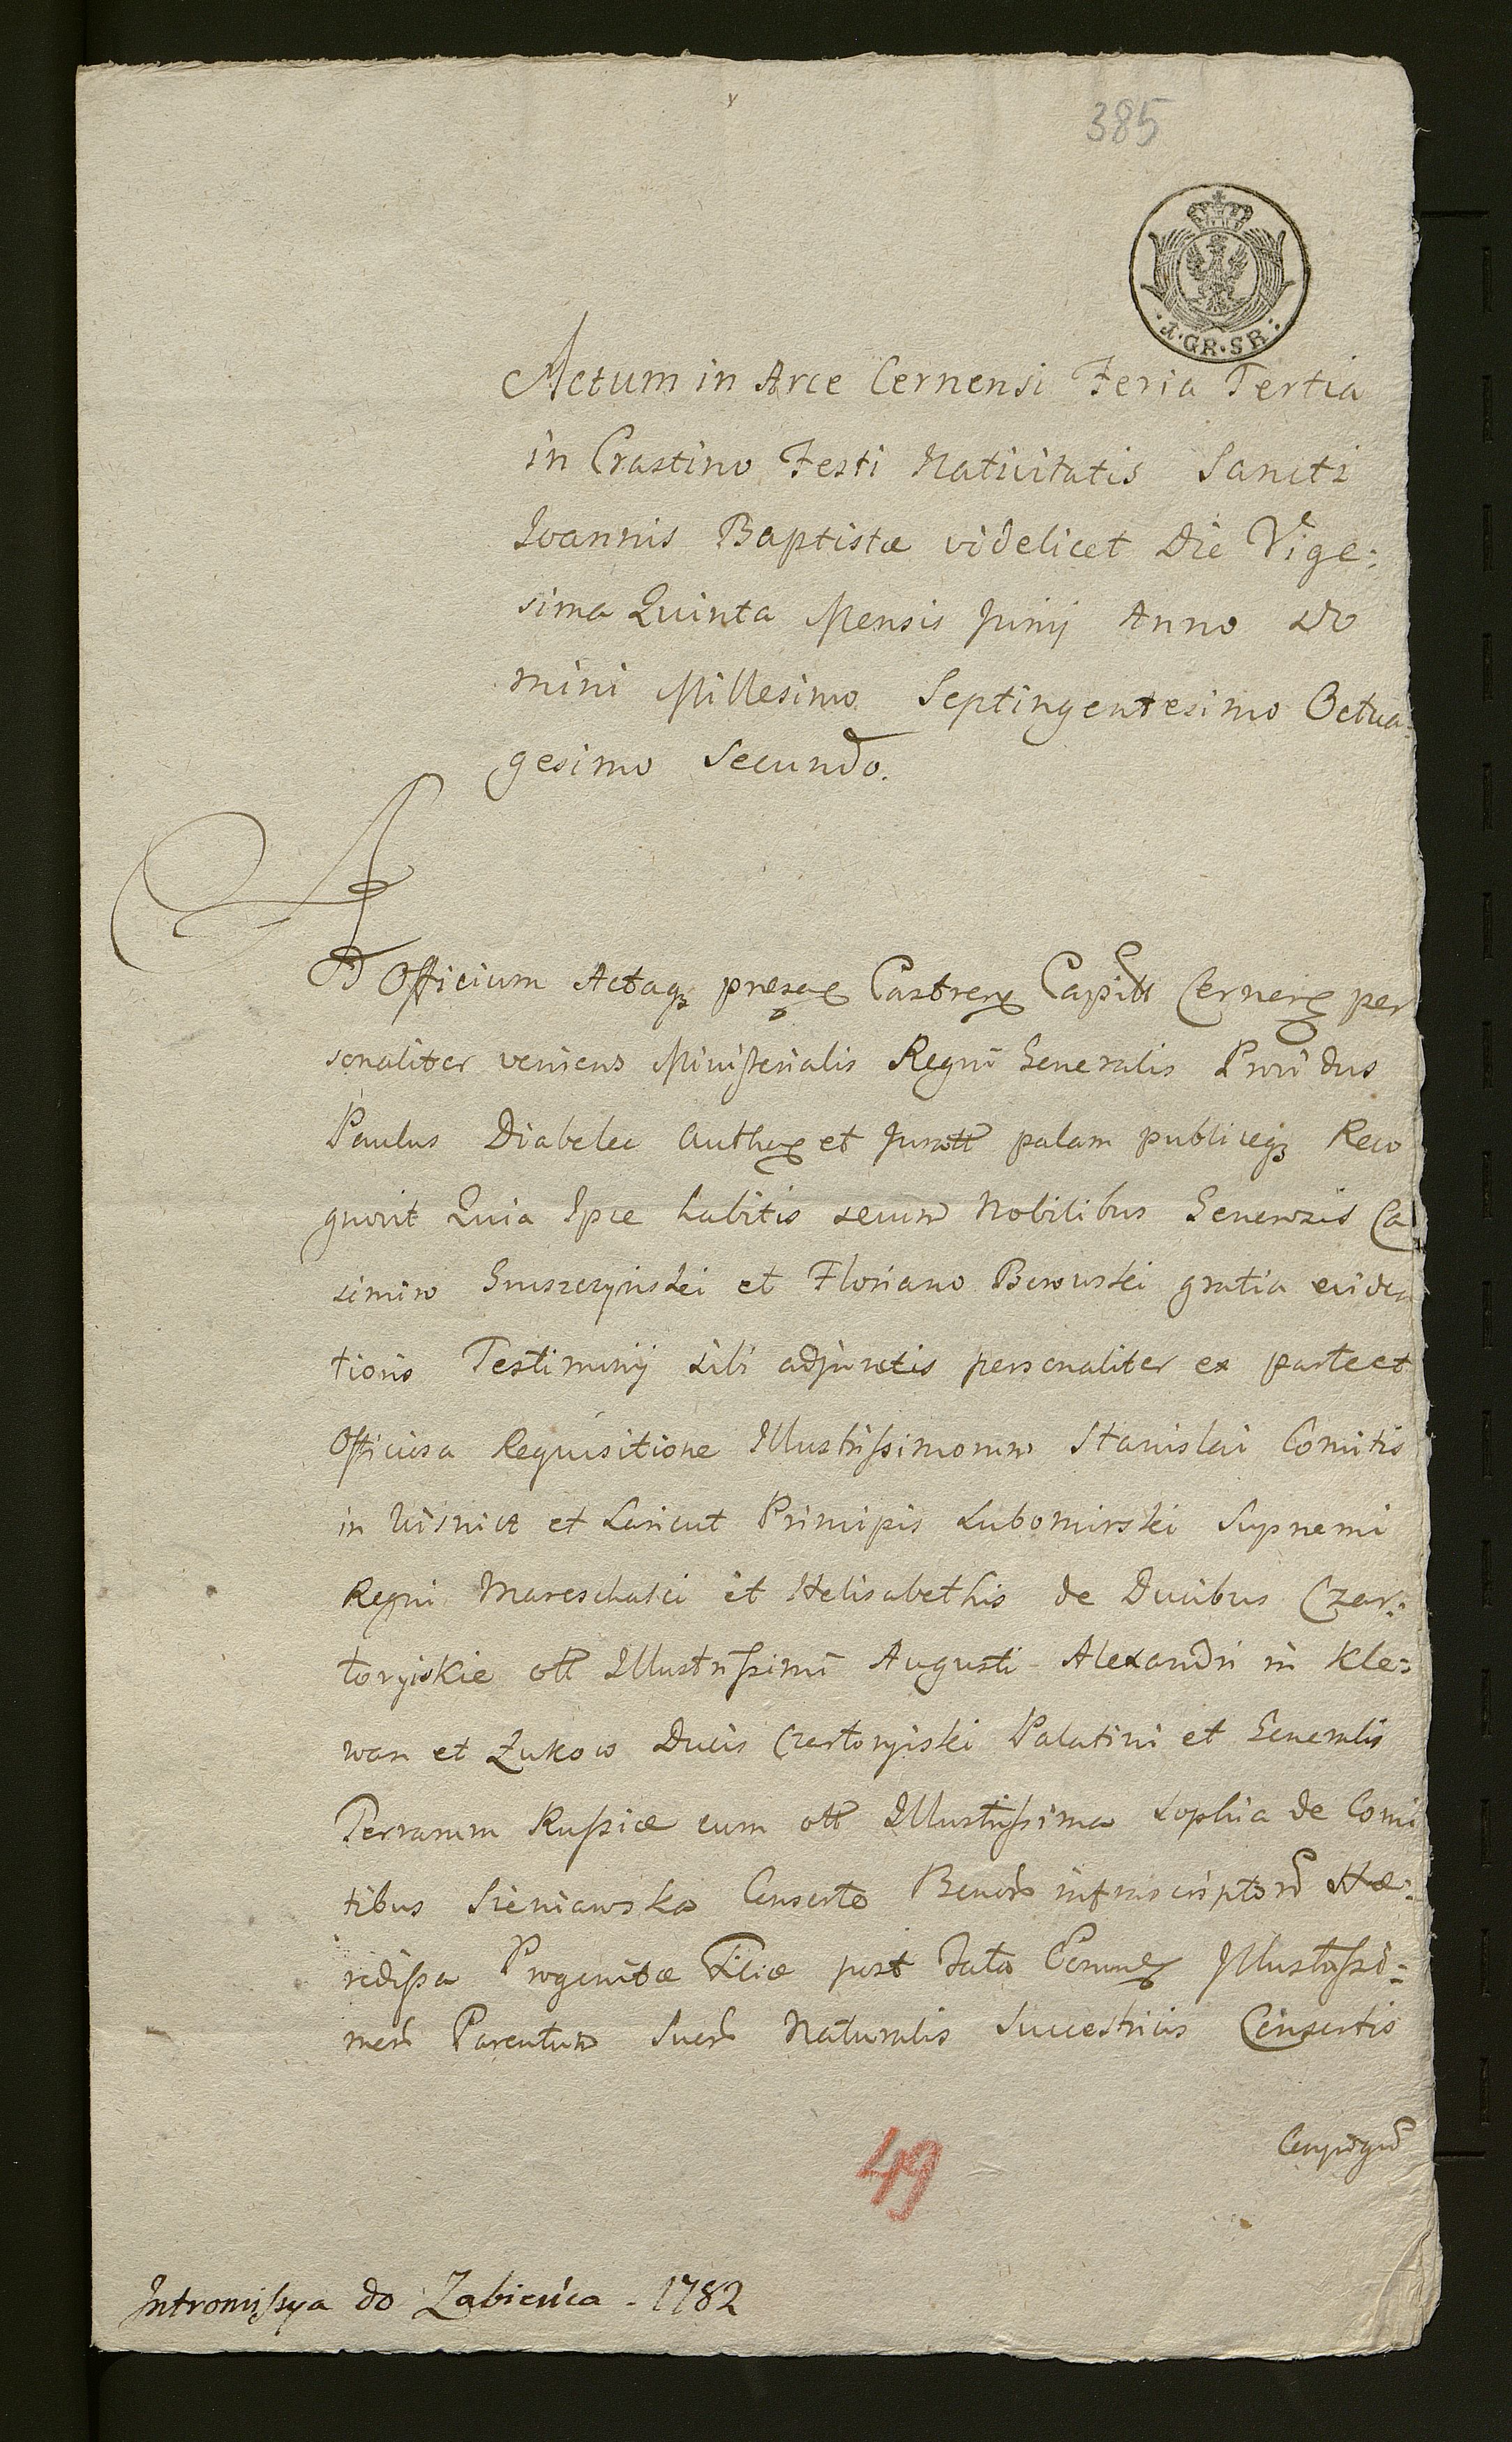 385
1.GR.SR.
Actum in Arce Cernensi Feria Tertia
in Crastino Festi Nativitatis Sancti
Ioannis Baptistæ videlicet Die Vige:
sima Quinta Mensis Junij Anno Do
mini Millesimo Septingentesimo Octua
gesimo Secundo.
AD Officium Actaqȝ præsen Castren Capitt Cernen per
sonaliter veniens Ministerialis Regni Generalis Providus
Paulus Diabelec Authen et Juratt palam publiceqȝ Reco
gnovit Quia Ipse habitis secum Nobilibus Generosis Ca
simiro Gruszczyński et Floriano Borowski gratia eviden
tioris Testimonij sibi adjunctis personaliter ex parte et
Officiosa Requisitione Illustrissimorum Stanislai Comitis
in Wisnicz et Lancut Principis Lubomirski Supremi
Regni Mareschalci et Helisabethis de Ducibus Czar:
toryiskie olt Illustrissimi Augusti Alexandri in Kle:
wan et Zukow Ducis Czartoryiski Palatini et Generalis
Terrarum Russiæ cum olt Illustrissima Sophia de Comi
tibus Sieniawska Consorte Bonor infrascriptor Hæ:
redissa Progenitæ Filiæ post Fata Eorund Illustrissi:
mor Parentum Suor Naturalis Successtricis Consortis
49
Intromissya do Zabieńca - 1782